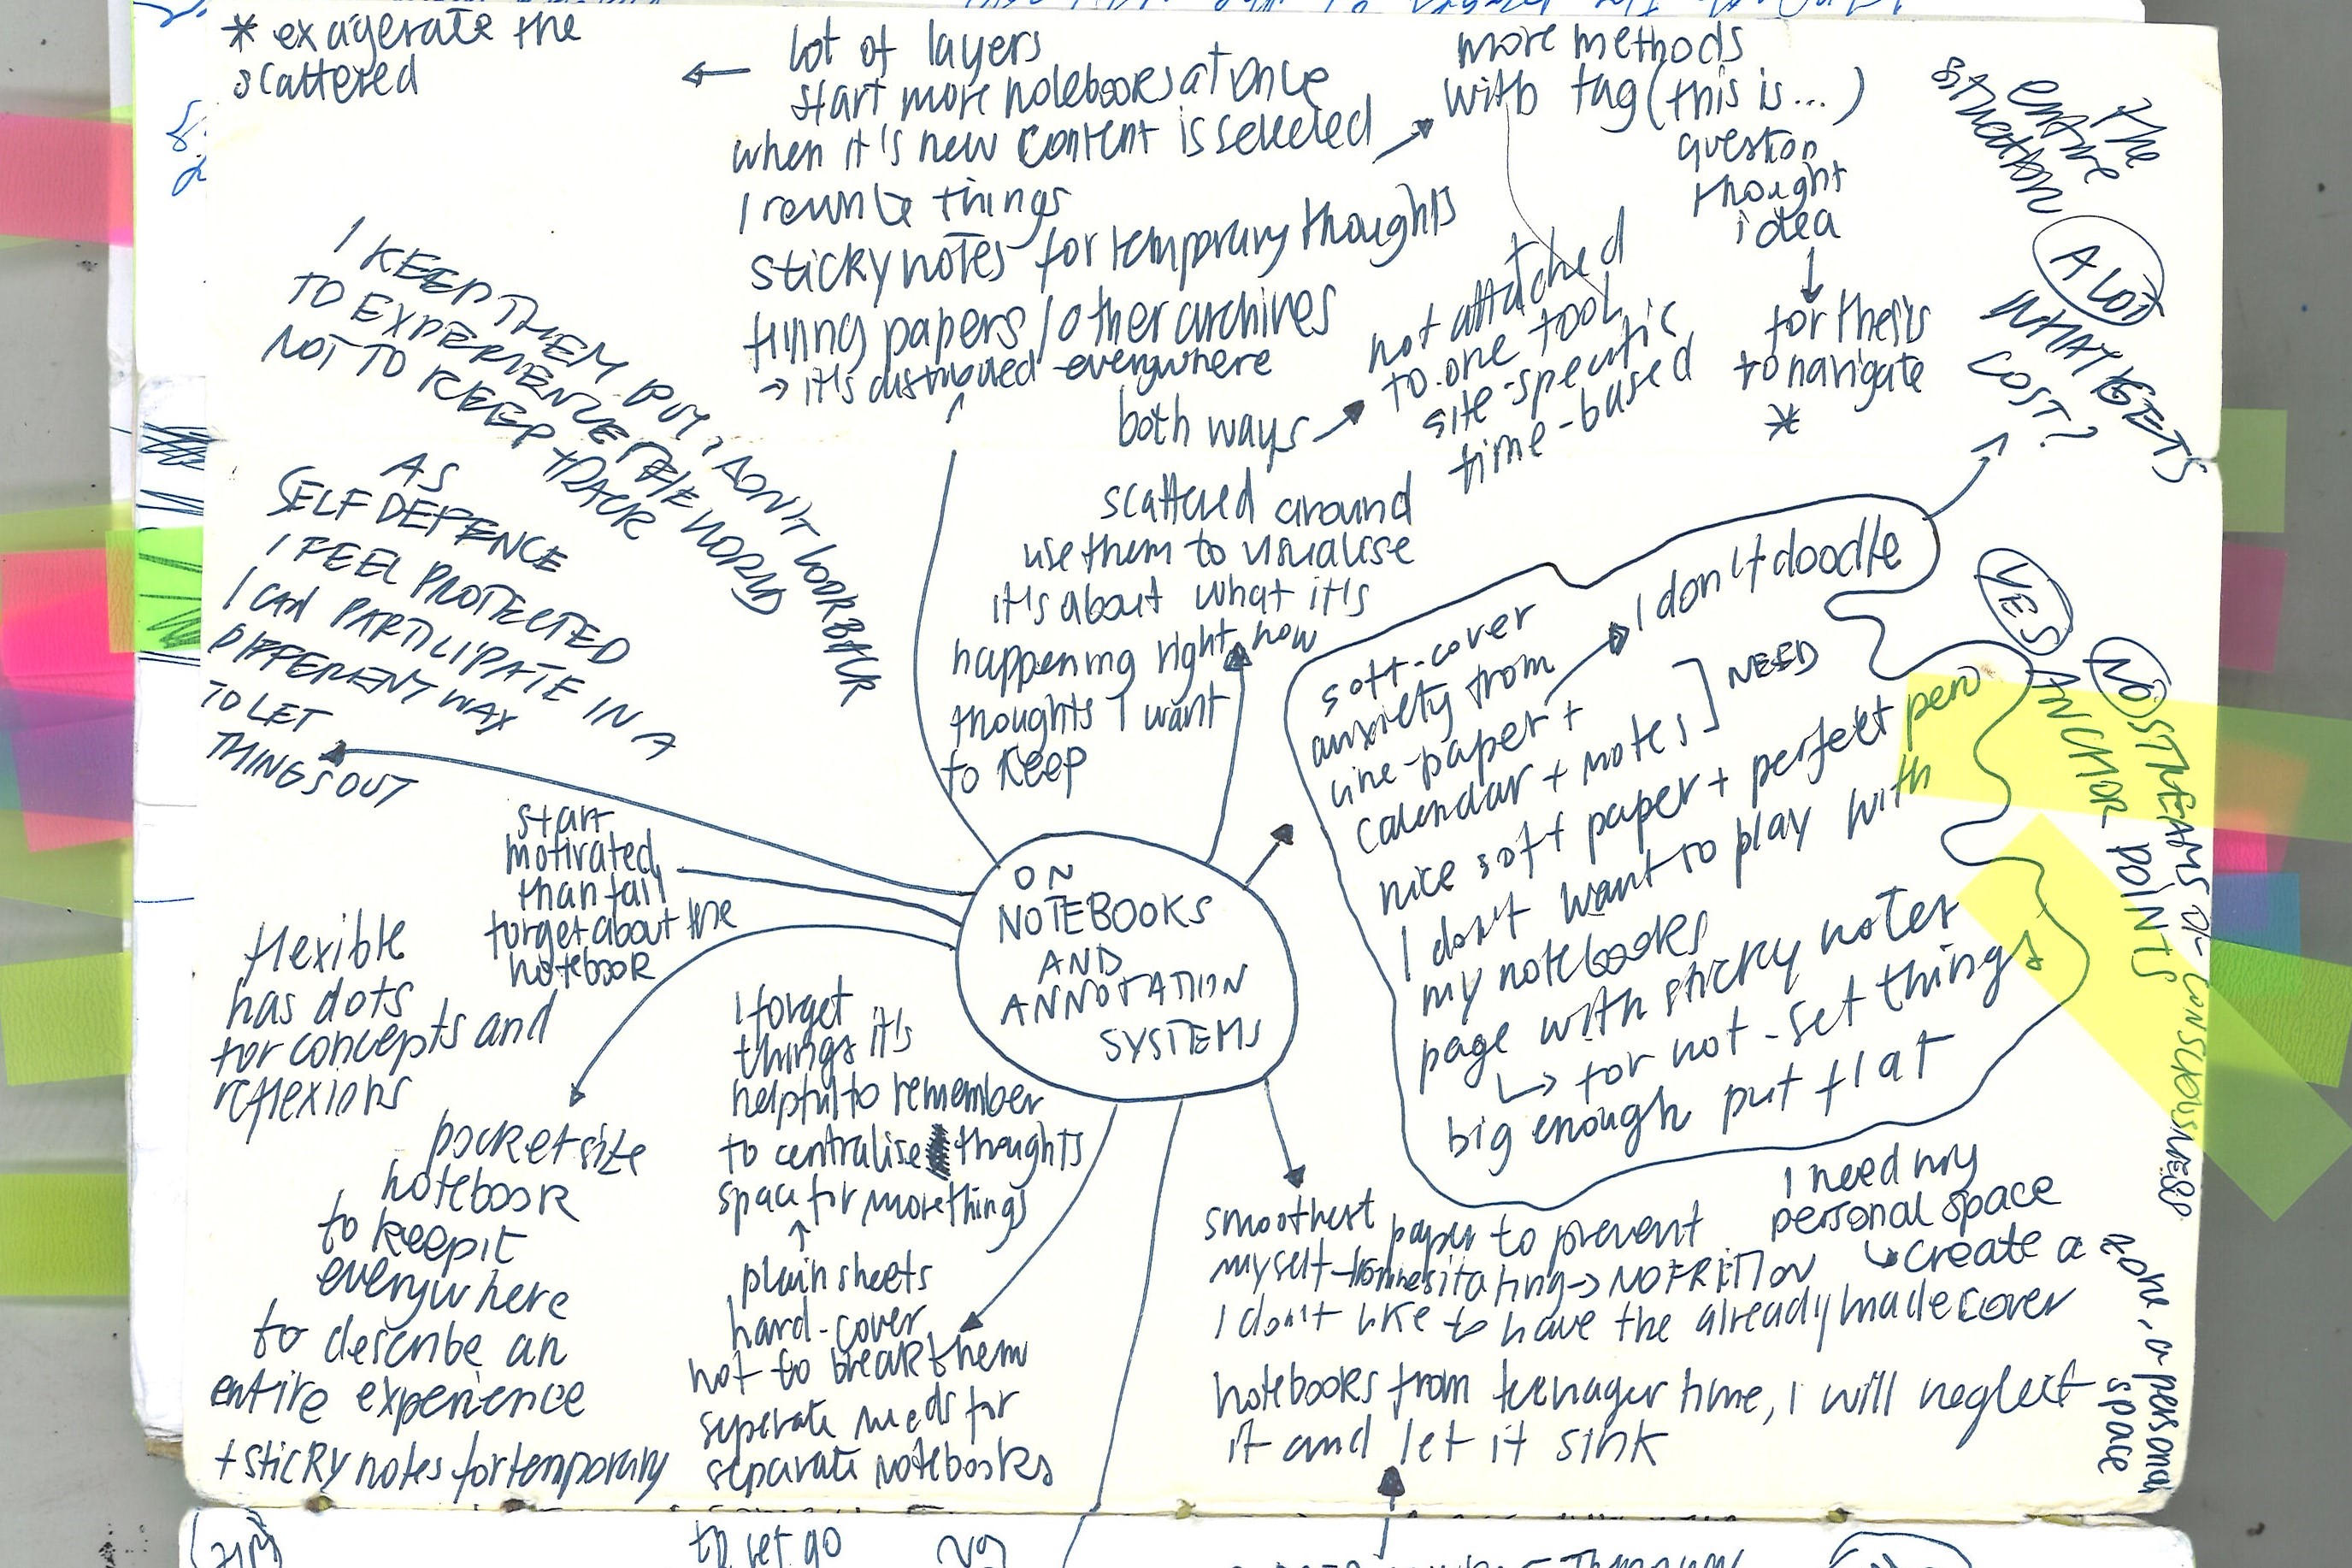 * exagerate the
scattered
lot of layers
start more notebooks at once
when it's new content is selected
I rewrite things
sticky notes for temporary thoughts
papers / other archives
→ it's distributed everywhere
more methods
with tag (this is...)
question
thought
idea
for thesis
to navigate
*
both ways
not attached
to one tool
site-specific
time-based
the
entire
situation
A LOT
WHAT GETS
COST?
I KEEP THEM BUT I DON'T LOOK BACK
TO EXPERIENCE THE WORLD
NOT TO KEEP TRACK
AS
SELF DEFENCE
I FEEL PROTECTED
I CAN PARTICIPATE IN A
DIFFERENT WAY
TO LET
THINGS OUT
scattered around
use them to visualise
it's about what it's
happening right now
thoughts I want
to keep
I don't doodle
soft-cover
anxiety from
line-paper +
calendar + notes] NEED
nice soft paper + perfekt pen
I don't want to play with
my notebooks
page with sticky notes
↳ for not-set things
big enough put flat
YES
ANCHOR POINTS
NO STREAMS OF CONSCIOUSNESS
start
motivated
than fail
forget about the
notebook
ON
NOTEBOOKS
AND
ANNOTATION
SYSTEMS
flexible
has dots
for concepts and
reflexions
pocket size
notebook
to keep it
everywhere
to describe an
entire experience
+ sticky notes for temporary
I forget
things it's
helpful to remember
to centralise thoughts
space for more things
plain sheets
hard-cover
not to break them
seperate needs for
separate notebooks
smoothest paper to prevent
myself from hesitating → NO FRITION
I don't like to have the already made cover
notebooks from teenager time, I will neglect
it and let it sink
I need my
personal space
↳ create a
zone, a personal
space
to let go